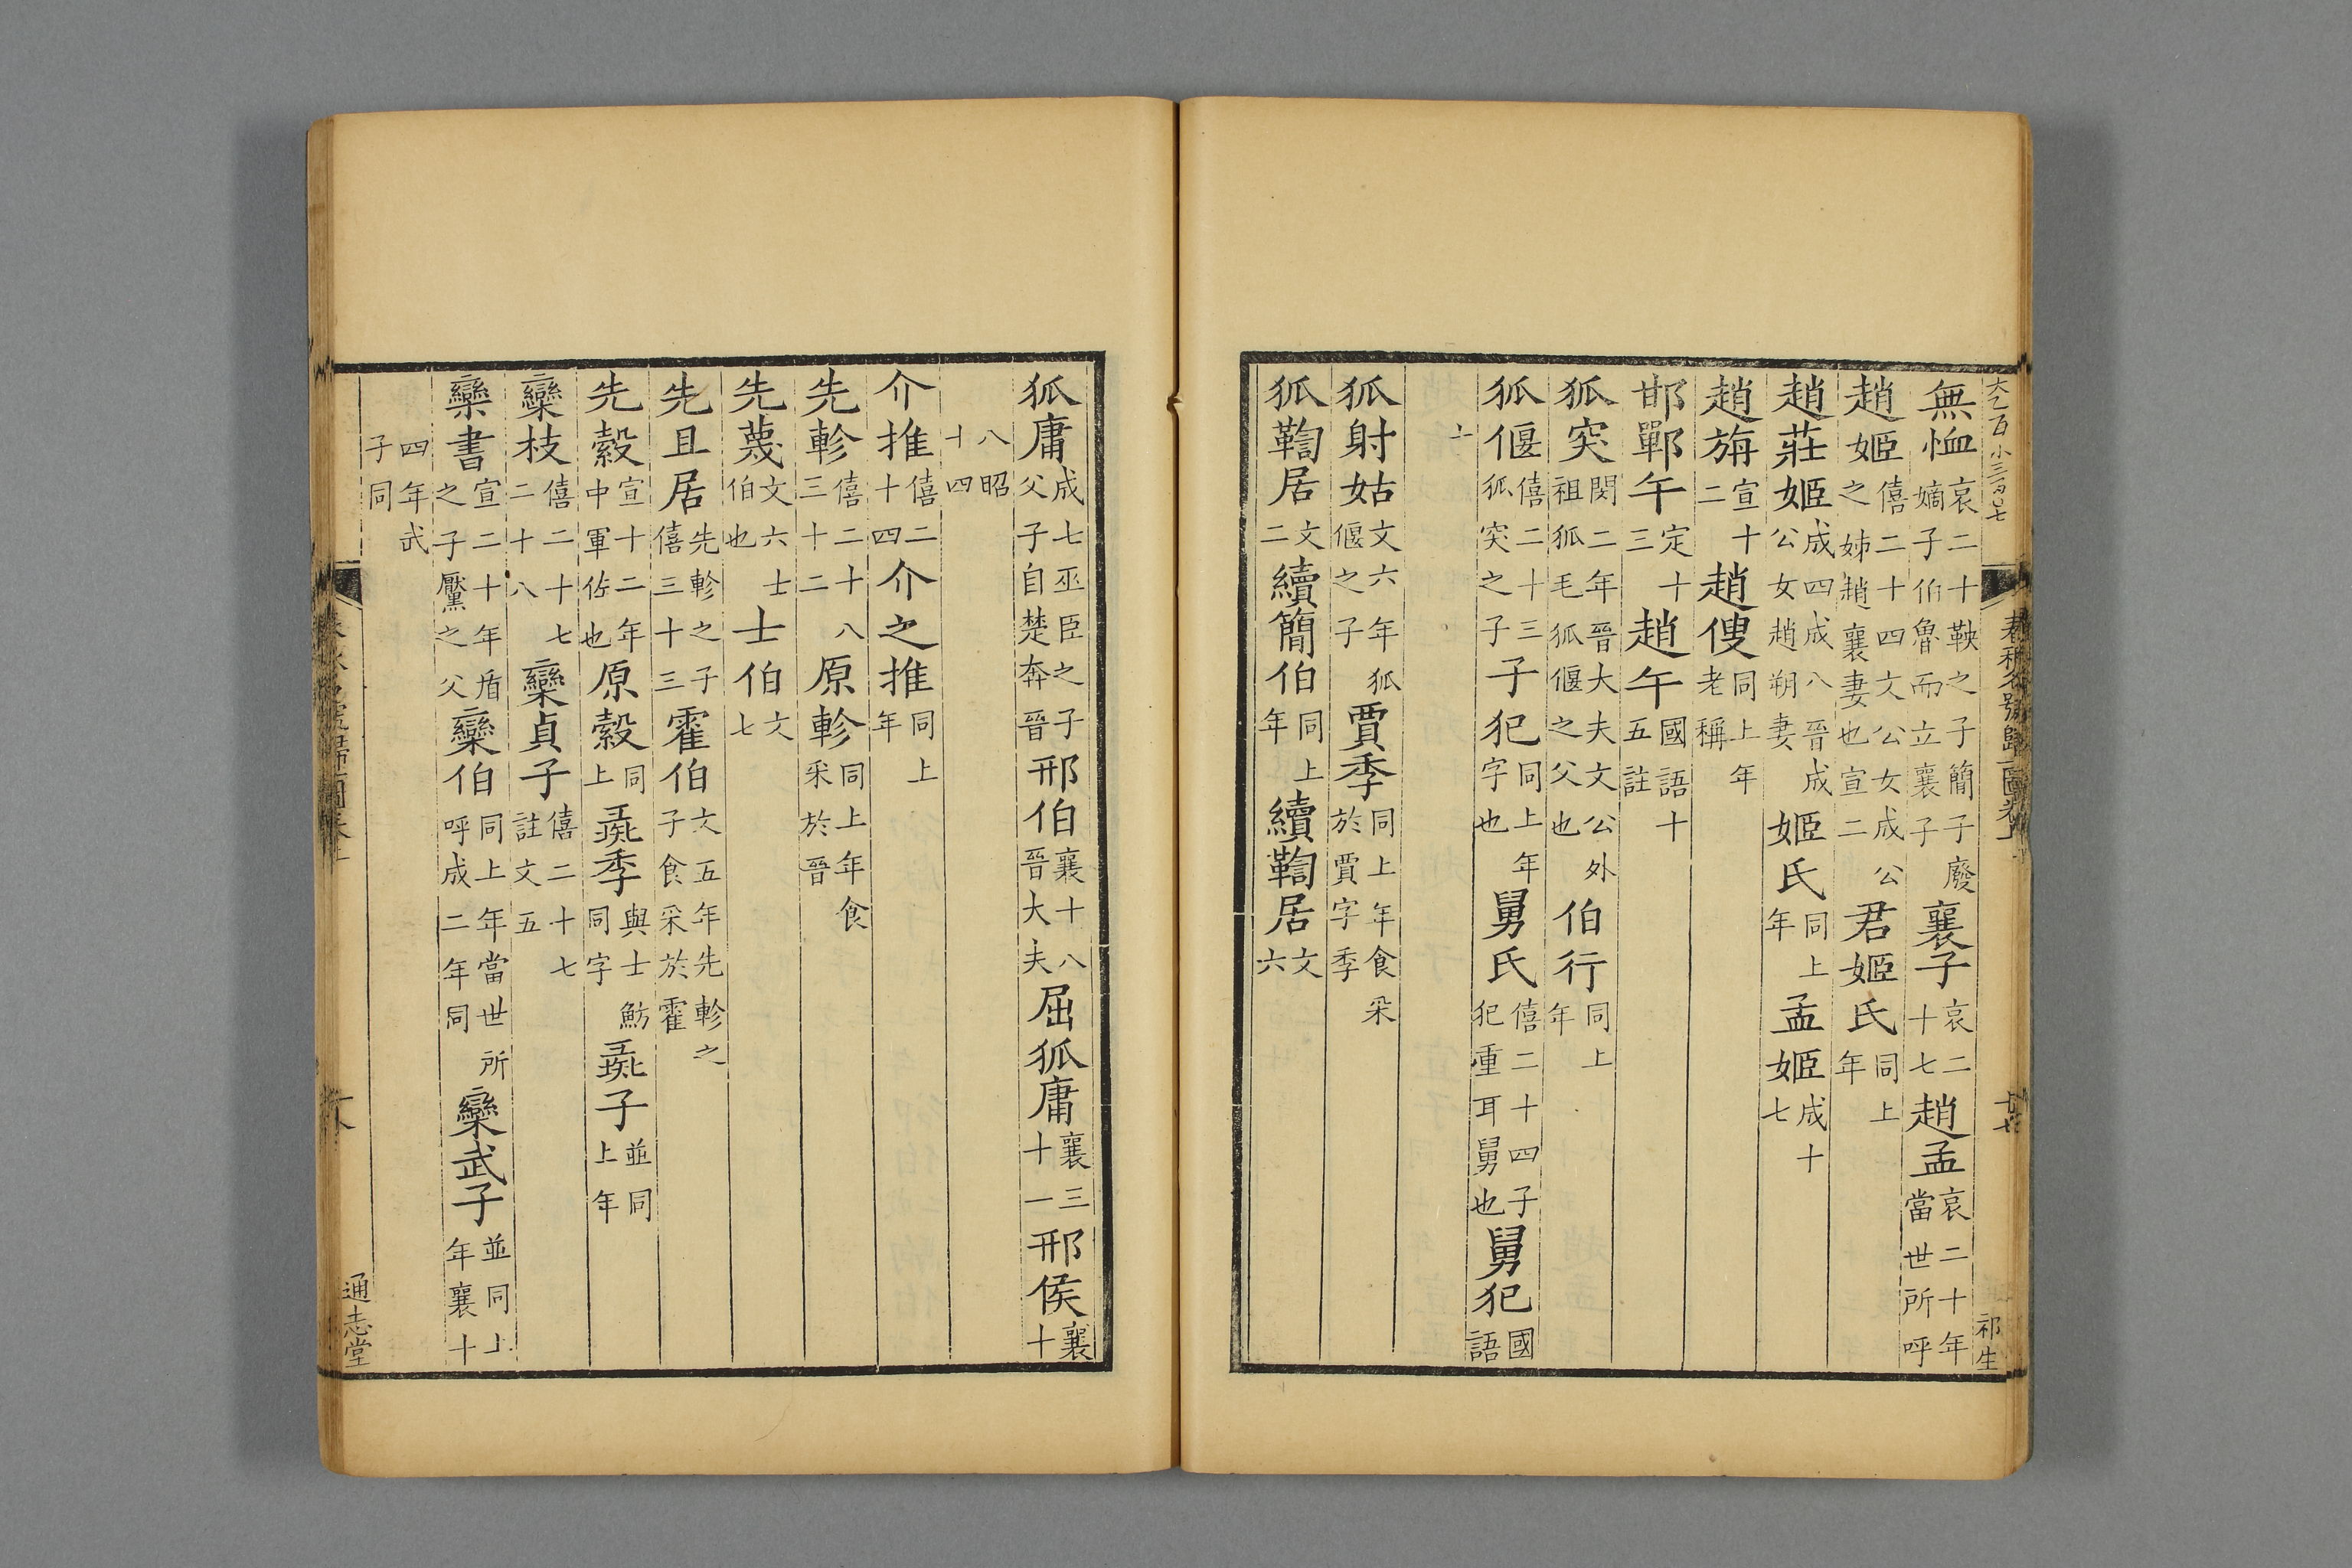 無恤哀二十鞅之子簡子廢嫡子伯魯而立襄子襄子哀二十七趙孟哀二十年當世所呼
趙姬僖二十四文公女成公之姊趙襄妻也宣二君姬氏同上年
趙莊姬成四成八晉成公女趙朔妻姬氏同上年孟姬成十七
趙旃宣十二趙傁同上年老稱
邯鄲午定十三趙午國語十五註
狐突閔二年晉大夫文公外祖狐毛狐偃之父也伯行同上年
狐偃僖二十三狐突之子子犯同上年字也舅氏僖二十四子犯重耳舅也舅犯國語
十
狐射姑文六年狐偃之子賈季同上年食采於賈字季
狐鞫居文二續簡伯同上年續鞫居文六
春秋名號歸一圖卷上
十七
祁生
狐庸成七巫臣之子父子自楚奔晉邢伯襄十八晉大夫屈狐庸襄三十一邢侯襄十
八昭十四
介推僖二十四介之推同上年
先軫僖二十八三十二原軫同上年食采於晉
先蔑文六士伯也士伯文七
先且居先軫之子僖三十三霍伯文五年先軫之子食采於霍
先縠宣十二年中軍佐也原縠同上彘季與士魴同字彘子並同上年
欒枝僖二十七二十八欒貞子僖二十七註文五
欒書宣二十年盾之子黶之父欒伯同上年當世所呼成二年同欒武子並同上年襄十
四年武子同
通志堂